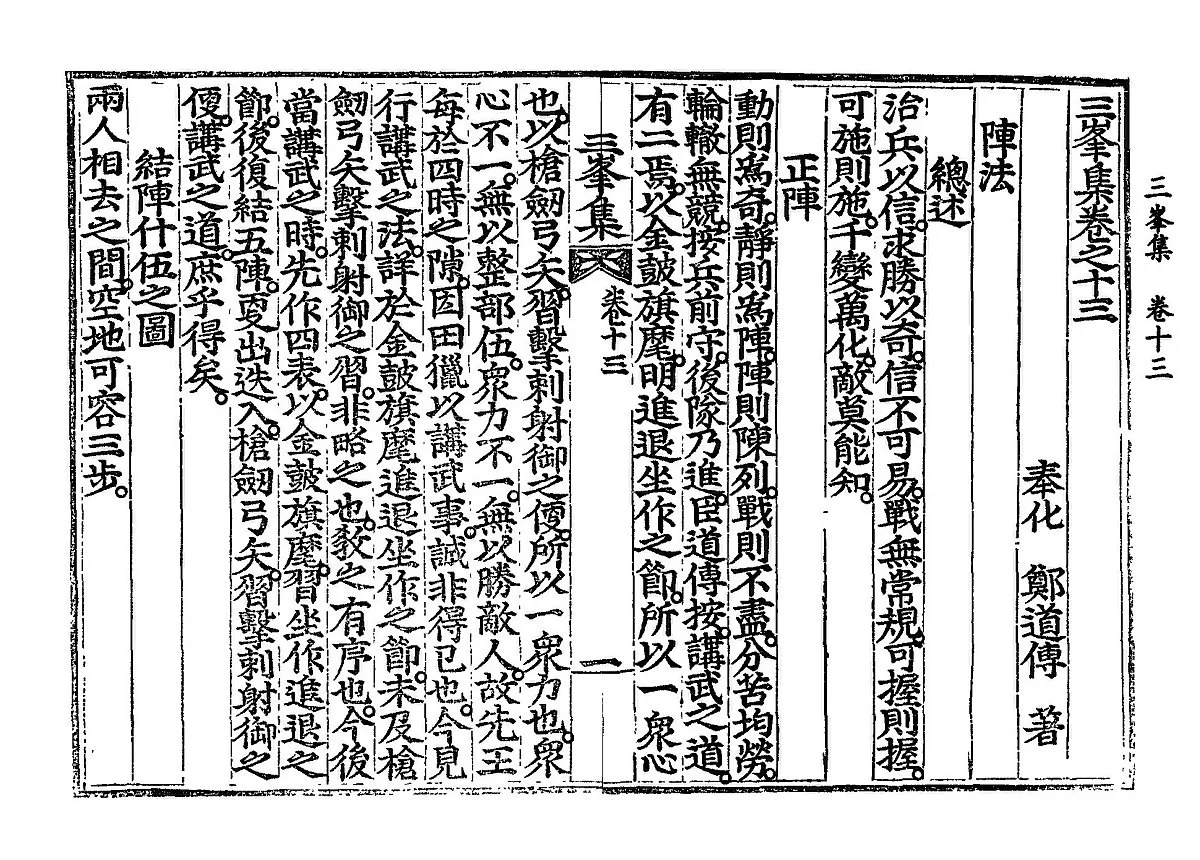 三峯集 卷十三
三峯集卷之十三
奉化 鄭道傳 著
陣法
總述
治兵以信。求勝以奇。信不可易。戰無常規。可握則握。
可施則施。千變萬化。敵莫能知。
正陣
動則爲奇。靜則爲陣。陣則陳列。戰則不盡。分苦均勞。
輪轍無競。按兵前守。後隊乃進。臣道傳按。講武之道。
有二焉。以金鼓旗麾。明進退坐作之節。所以一衆心
三峯集 卷十三 一
也。以槍劒弓矢。習擊刺射御之便。所以一衆力也。衆
心不一。無以整部伍。衆力不一。無以勝敵人。故先王
每於四時之隙。因田獵以講武事。誠非得已也。今見
行講武之法。詳於金鼓旗麾進退坐作之節。未及槍
劒弓矢擊刺射御之習。非略之也。敎之有序也。今後
當講武之時。先作四表。以金鼓旗麾。習坐作進退之
節。後復結五陣。更出迭入。槍劒弓矢。習擊刺射御之
便。講武之道。庶乎得矣。
結陣什伍之圖
兩人相去之間。空地可容三步。